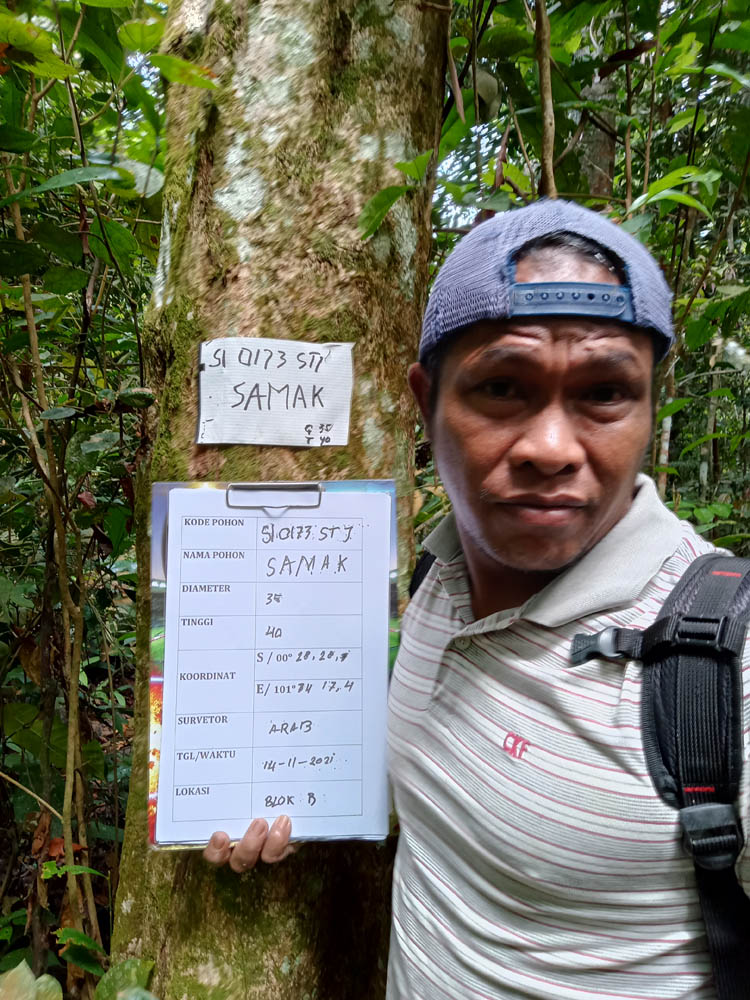 SI 0173 STJ
SAMAK
T 40
KODE POHON SI 0173 STJ
NAMA POHON SAMAK
DIAMETER
TINGGI 40
KOORDINAT S / 00° 28, 28,
E/ 101° 17,4
SURVETOR ARAB
TGL/WAKTU 14-11-2021
LOKASI BLOK B
CKF